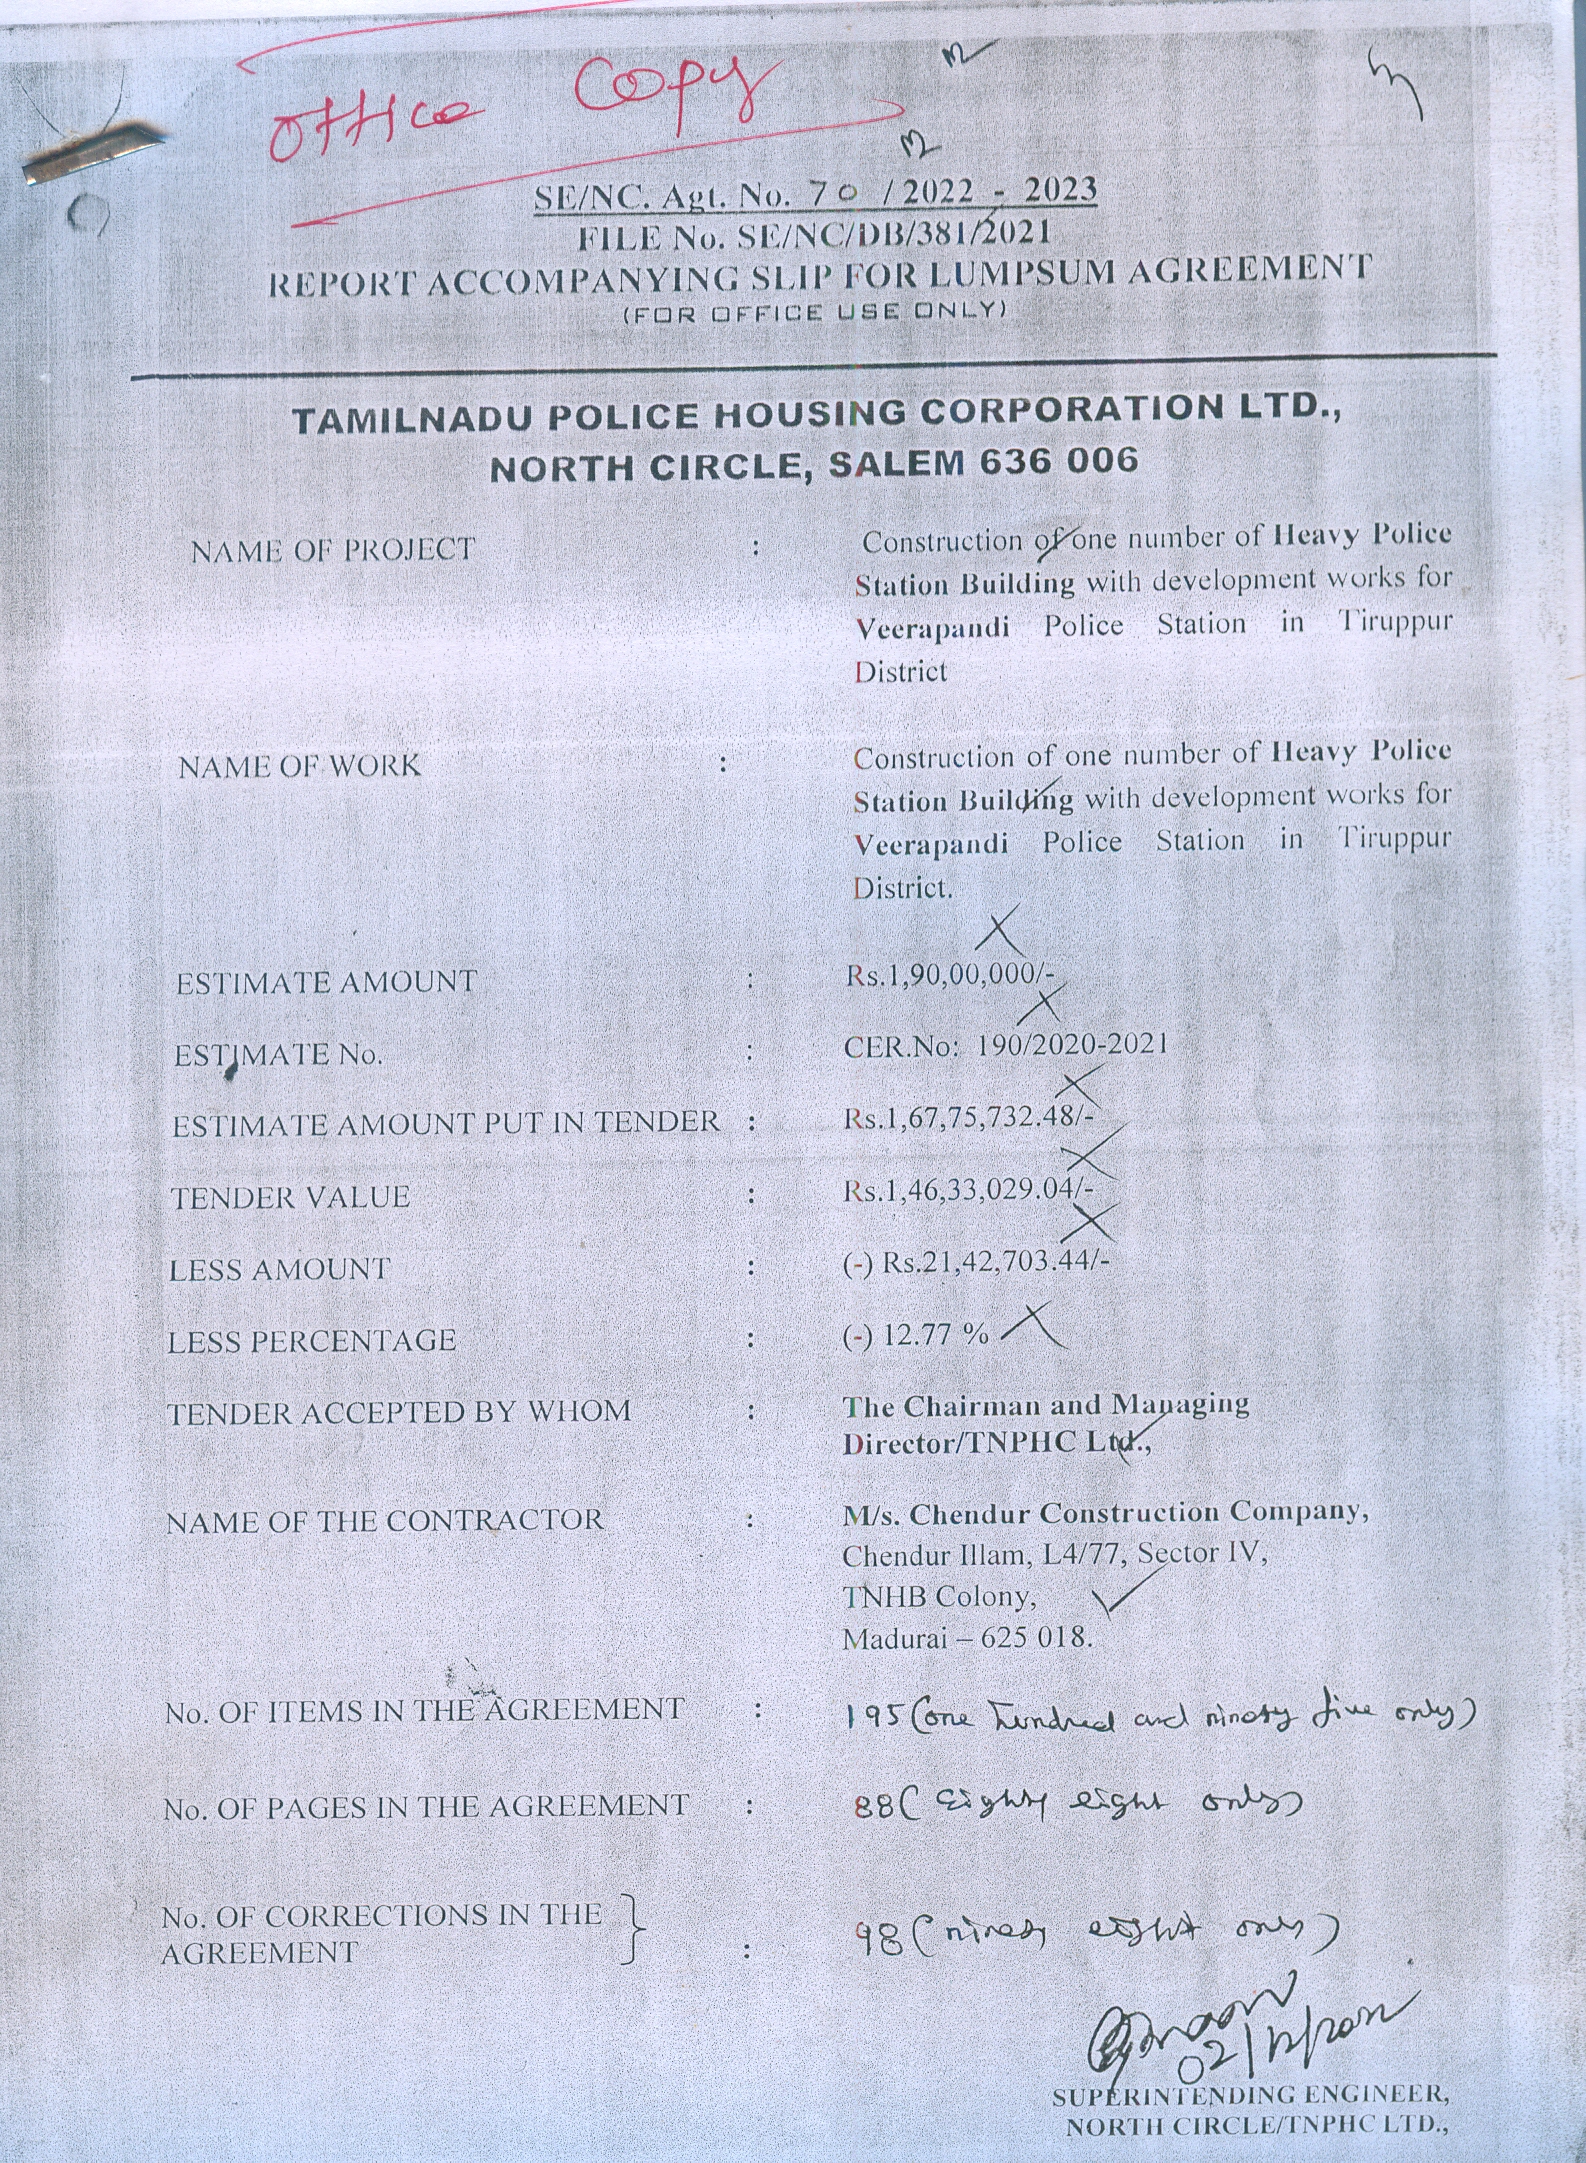 Office Copy
SE/NC. Agt. No. 70 / 2022 - 2023
FILE No. SE/NC/DB/381/2021
REPORT ACCOMPANYING SLIP FOR LUMPSUM AGREEMENT
(FOR OFFICE USE ONLY)
TAMILNADU POLICE HOUSING CORPORATION LTD.,
NORTH CIRCLE, SALEM 636 006
NAME OF PROJECT : Construction of one number of Heavy Police
Station Building with development works for
Veerapandi Police Station in Tiruppur
District
NAME OF WORK : Construction of one number of Heavy Police
Station Building with development works for
Veerapandi Police Station in Tiruppur
District.
ESTIMATE AMOUNT : Rs.1,90,00,000/-
ESTIMATE No. : CER.No: 190/2020-2021
ESTIMATE AMOUNT PUT IN TENDER : Rs.1,67,75,732.48/-
TENDER VALUE : Rs.1,46,33,029.04/-
LESS AMOUNT : (-) Rs.21,42,703.44/-
LESS PERCENTAGE : (-) 12.77 %
TENDER ACCEPTED BY WHOM : The Chairman and Managing
Director/TNPHC Ltd.,
NAME OF THE CONTRACTOR : M/s. Chendur Construction Company,
Chendur Illam, L4/77, Sector IV,
TNHB Colony,
Madurai – 625 018.
No. OF ITEMS IN THE AGREEMENT : 195 (one hundred and ninety five only)
No. OF PAGES IN THE AGREEMENT : 88 (Eighty eight only)
No. OF CORRECTIONS IN THE
AGREEMENT : 98 (ninety eight only)
SUPERINTENDING ENGINEER,
NORTH CIRCLE/TNPHC LTD.,